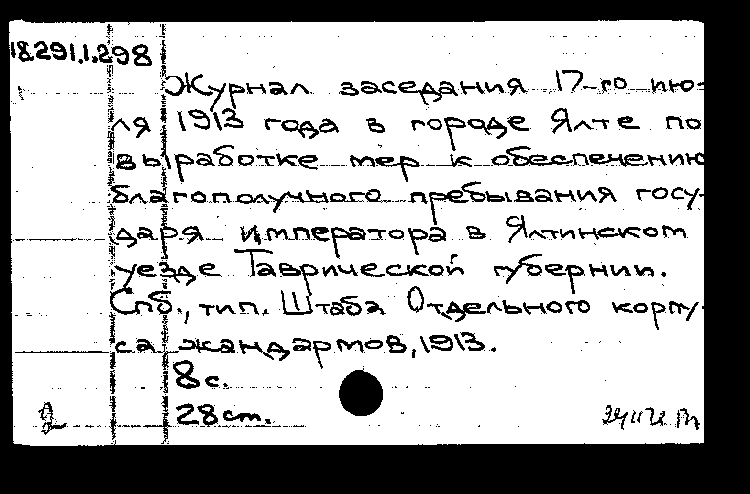 18.291.1.298
Журнал заседания 17-го ию-
ля 1913 года в городе Ялте по
выработке мер к обеспечению
благополучного пребывания госу-
даря императора в Ялтинском
уезде Таврической губернии.
Спб., тип. Штаба Отдельного корпу-
са жандармов, 1913.
8 с.
28 см.
2